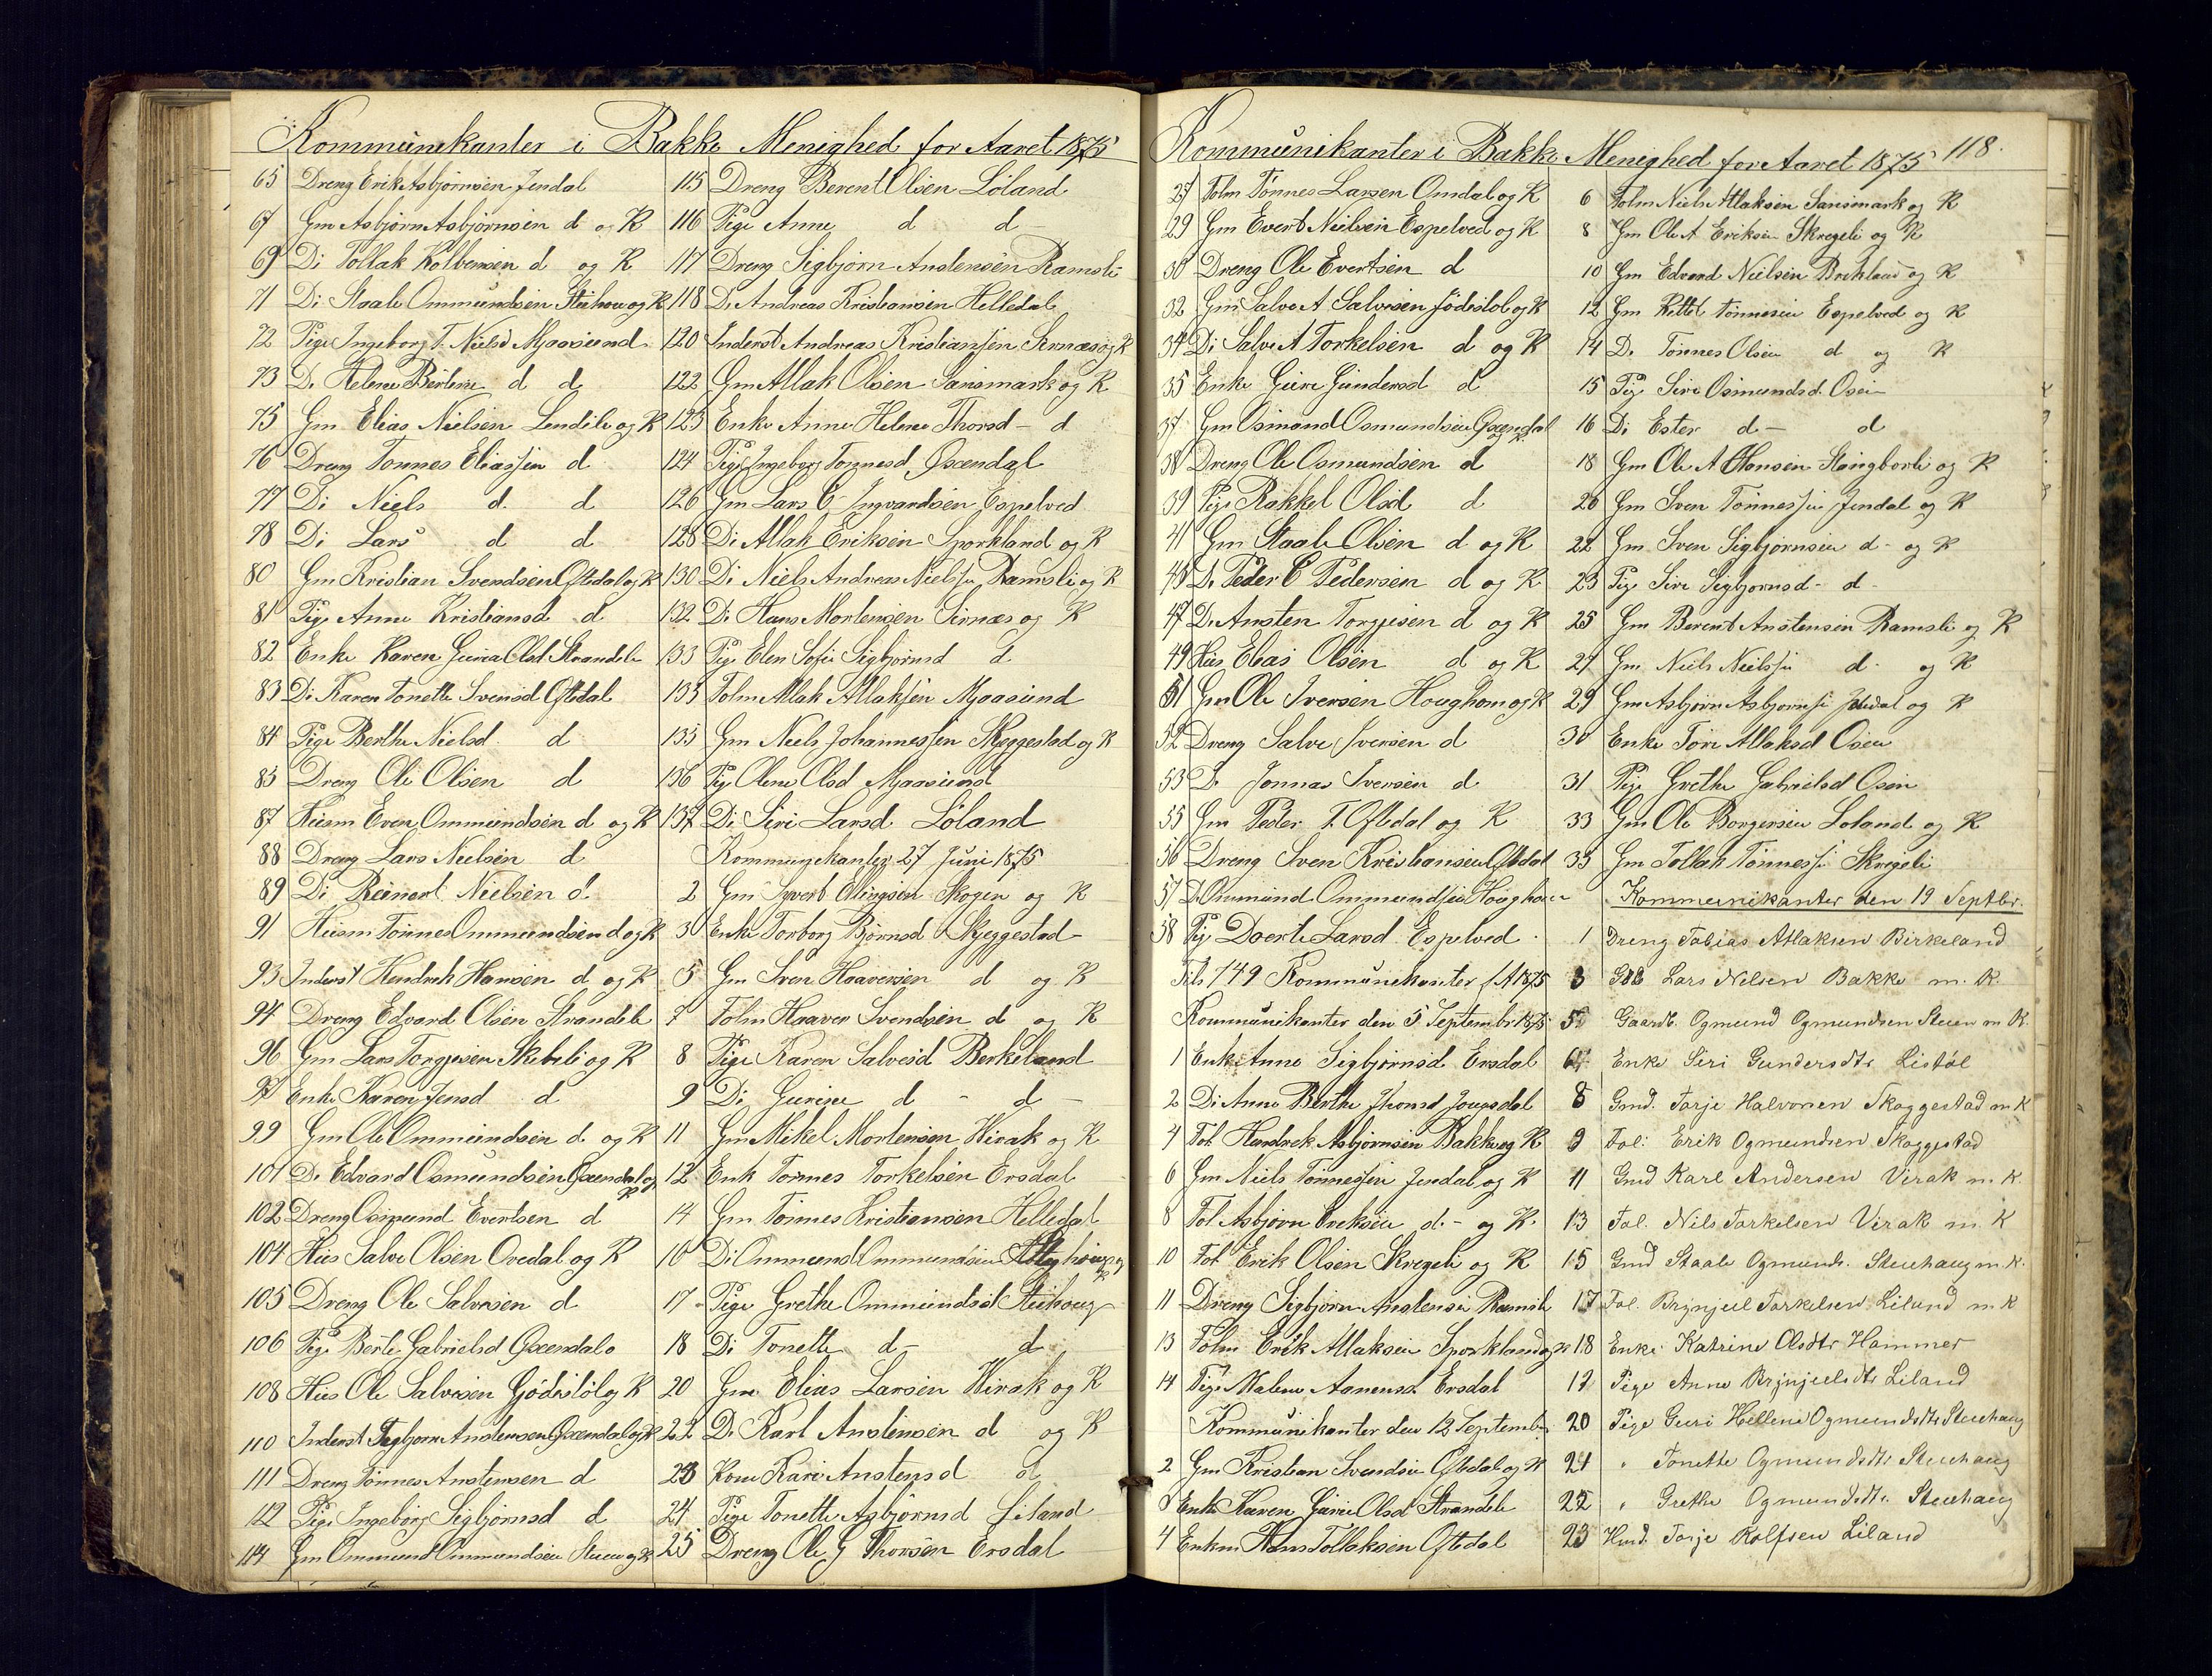 Kommunikanter i Bakke Menighed for Aaret 1875
65 Dreng Erik Asbjørnsen Jendal
67 Gm Asbjørn Asbjørnsen d og K
69 Di Tollak Kolbensen d og K
71 Di Staale Ommundsen Stuhoug og K
72 Pige Ingeborg T. Nielsd Mjaasund
73 Di Helene Bertine d d
75 Gm Elias Nielsen Lendele og K
76 Dreng Tønnes Eliassen d
77 Di Niels d d
78 Di Lars d d
80 Gm Kristian Svendsen Oftedal og K
81 Pige Anne Kristiansd d
82 Enke Karen Guria Olsd Strandele
83 Di Karen Tonette Svensd Oftedal
84 Pige Berthe Nielsd d
85 Dreng Ole Olsen d
87 Huusm Even Ommundsen d og K
88 Dreng Lars Nielsen d
89 Di Reinert Nielsen d
91 Huusm Tønnes Ommundsen d og K
93 Inderst Hendrek Hansen d og K
94 Dreng Edvard Olsen Strandele
96 Gm Lars Torgjesen Skibeli og K
97 Enke Karen Jensd d
99 Gm Ole Ommundsen d og K
101 Di Edvard Osmundsen Øxendal og K
102 Dreng Osmund Evertsen d
104 Huus Salve Olsen Ovedal og K
105 Dreng Ole Salvesen d
106 Pige Berte Gabrielsd Øxendal
108 Huus Ole Salvesen Gjødestøl og K
110 Inderst Sigbjørn Anstensen Øxendal og K
111 Dreng Tønnes Anstensen d
112 Pige Ingeborg Sigbjørnsd d
114 Gm Ommund Ommundsen Stuen og K
115 Dreng Berent Olsen Løland
116 Pige Anne d d
117 Dreng Sigbjørn Anstensen Ramsli
118 Di Andreas Kristiansen Helledal
120 Inderst Andreas Kristiansen Sirnæs og K
122 Gm Atlak Olsen Sansmark og K
123 Enke Anne Helene Thorsd - d
124 Pige Ingeborg Tønnesd Øxendal
126 Gm Lars C Ingvardsen Espelved
128 Di Atlak Eriksen Sporkland og K
130 Di Niels Andreas Nielsen Ramsli og K
132 Di Hans Mortensen Sirnæs og K
133 Pige Elen Sofie Sigbjørnsd d
133 Tolm Atlak Atlaksen Mjaasund
135 Gm Niels Johannessen Skjeggestad og K
136 Pige Olene Olsd Mjaasund
137 Di Siri Larsd Løland
Kommunekanter 27 Juni 1875
2 Gm Syvert Ellingsen Skogen og K
3 Enke Torborg Bjørnsd Skjeggestad
5 Gm Sven Haaversen d og K
7 Folm Haaver Svendsen d og K
8 Pige Karen Salvesd Berkeland
9 Di Gurine d - d
11 Gm Mikel Mortensen Virak og K
12 Enk Tønnes Torkelsen Ersdal
14 Gm Tønnes Kristiansen Helledal
16 Di Ommund Ommundsen og K
17 Pige Grethe Ommundsd Stuhoug
18 Di Tonette d - d
20 Gm Elias Larsen Virak og K
22 Di Karl Anstensen d og K
23 Kone Kari Anstensd d
24 Pige Tonette Asbjørnsd Liland
25 Dreng Ole G Thorsen Ersdal
Kommunikanter i Bakke Menighed for Aaret 1875 118.
27 Folm Tønnes Larsen Omdal og K
29 Gm Evert Nielsen Espelved og K
30 Dreng Ole Evertsen d
32 Gm Salve A Salvesen Jødestol og K
34 Di Salve A Torkelsen d og K
35 Enke Gure Gundersd d
37 Gm Osmond Osmundsen Øxendal og K
38 Dreng Ole Osmundsen d
39 Pige Rakkel Olsd d
41 Gm Staale Olsen d og K
45 Di Peder C Pedersen d og K
47 Di Ansten Torgjesen d og K
49 Huus Elias Olsen d og K
51 Gm Ole Iversen Houghom og K
52 Dreng Salve Iversen d
53 D Jonnas Iversen d
55 Gm Peder T. Oftedal og K
56 Dreng Sven Kristiansen Oftedal
57 D Ommund Ommundsen Houghom
58 Pige Doerte Larsd Espelved
Tils 749 Kommunikanter f A 1875
Kommunikanter den 5 Septembr 1875
1 Enke Anne Sigbjørnsd Ersdal
2 Di Anne Berthe Thorsd Jougsdal
4 Fol Hendrek Asbjørnsen Bakke og K
6 Gm Niels Tønnessen Jendal og K
8 Fol Asbjørn Ereksen d - og K
10 Fol Erik Olsen Skregeli og K
11 Dreng Sigbjørn Anstensen Ramsli
13 Folm Erik Atlaksen Sporkland og K
14 Pige Malene Aanensd Ersdal
Kommunikanter den 12 Septembr
2 Gm Kristian Svendsen Oftedal og K
3 Enke Karen Gurie Olsd Strandele
4 Enkm Hans Tollaksen Oftedal
6 Folm Niels Atlaksen Sansmark og K
8 Gm Ole A Eriksen Skregeli og K
10 Gm Edvard Nielsen Birkland og K
12 Gm Kettel Tønnesen Espelved og K
14 D. Tønnes Olsen d og K
15 Pige Siri Osmundsd. Osen
16 Di Ester d - d
18 Gm Ole A Hansen Stangborli og K
20 Gm Sven Tønnessen Jendal og K
22 Gm Sven Sigbjørnsen d - og K
23 Pige Siri Sigbjørnsd - d
25 Gm Berent Anstensen Ramsli og K
27 Gm Niels Nielssen d. og K
29 Gm Asbjørn Asbjørnsen Jendal og K
30 Enke Tore Atlaksd Osen
31 Pige Grethe Gabrielsd Osen
33 Gm Ole Borgersen Løland og K
35 Gm Tollak Tønnessen Skregeli
Kommunikanter den 19 Septbr.
1 Dreng Tobias Atlaksen Birkeland
3 Gdb Lars Nilsen Bakke m. K.
5 Gaardb. Ogmund Ogmundsen Stuen m K.
6 Enke Siri Gundersdtr Listøl
8 Gmd. Tarje Halvorsen Skaggestad m K
9 Fol: Erik Ogmundsen Skaggestad
11 Gmd Karl Andersen Virak m. K.
13 Fol. Nils Torkelsen Virak m. K
15 Gmd Staale Ogmunds. Stuehaug m. K.
17 Fol. Brynjuel Torkelsen Liland m. K
18 Enke Katrine Olsdtr Hammer
19 Pige Anne Brynjuelsdtr Liland
20 Pige Guri Helline Ogmundsdtr Stuehaug
21 " Tonette Ogmundsdtr Stuehaug
22 " Grethe Ogmundsdtr. Stuehaug
23 Hmd. Tarje Rolfsen Liland